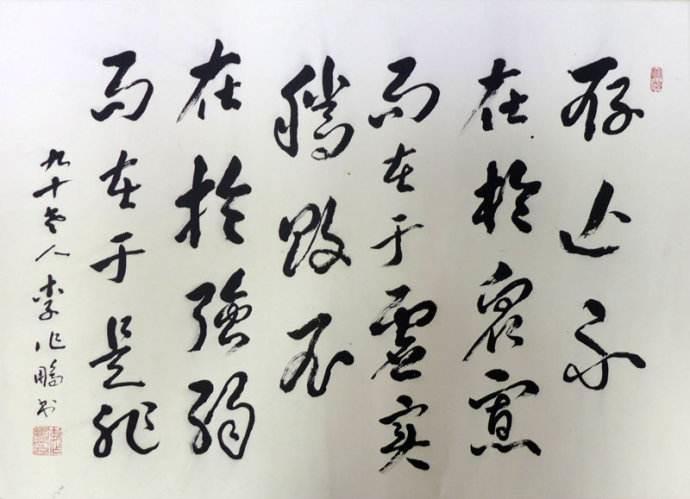 存亡不
在於眾寡
而在于虛实
勝敗不
在於強弱
而在于是非
九十老人李作鵬书